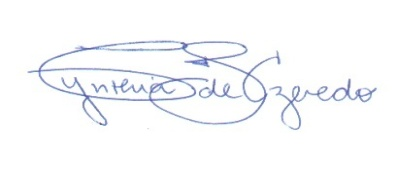 Cynthia B de Azevedo